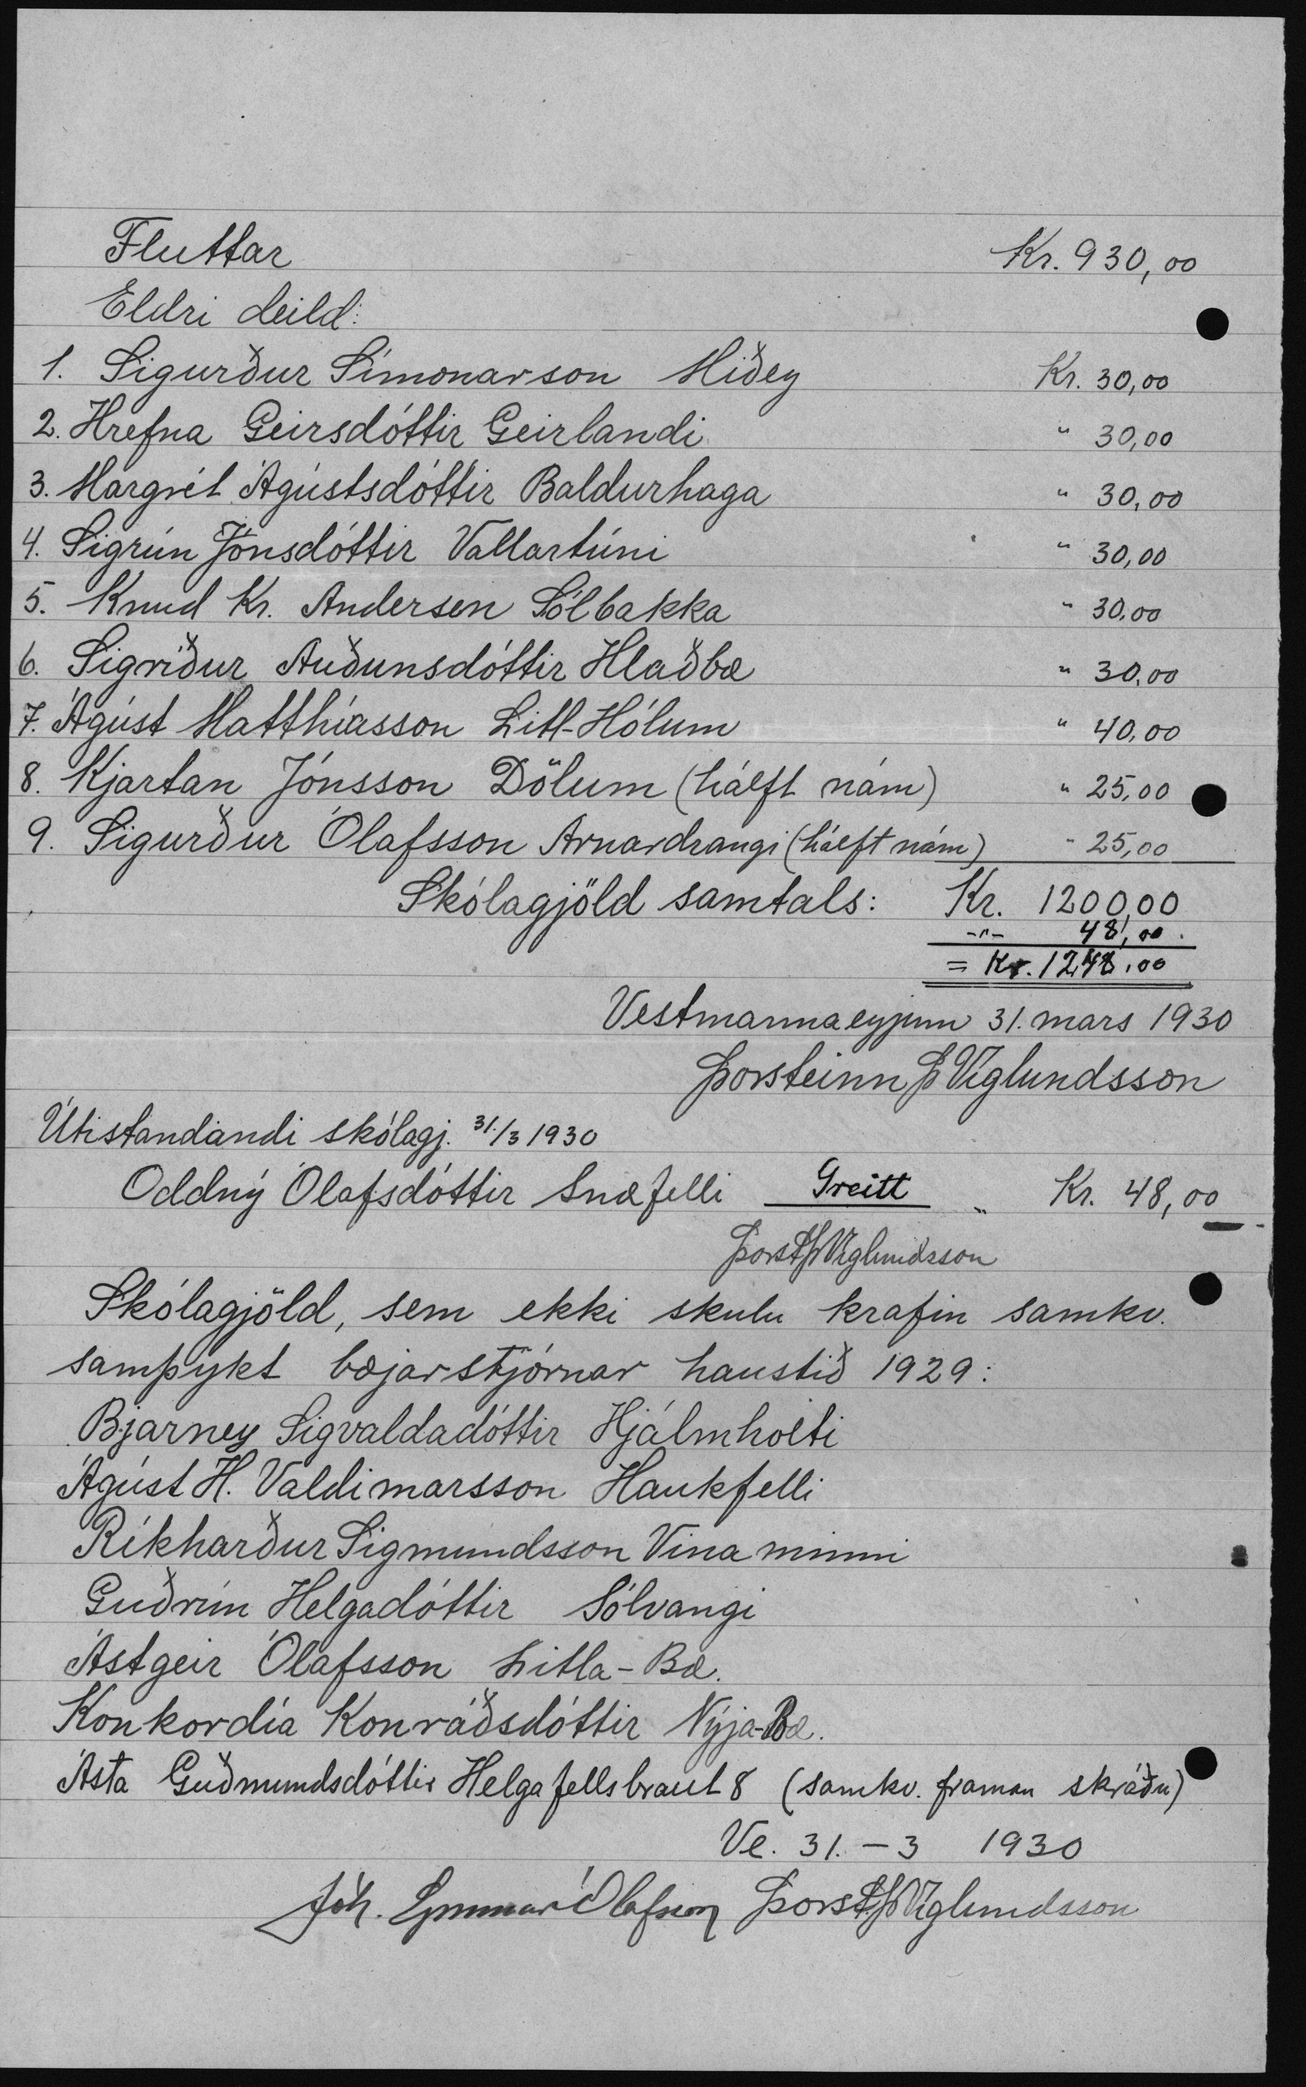 Fluttar Kr. 930,00
Eldri deild:
1. Sigurður Símonarson Miðey Kr. 30,00
2. Hrefna Geirsdóttir Geirlandi " 30,00
3. Margrét Ágústsdóttir Baldurhaga " 30,00
4. Sigrún Jónsdóttir Vallartúni " 30,00
5. Knud Kr. Andersen Sólbakka " 30,00
6. Sigríður Auðunsdóttir Hlaðbæ " 30,00
7. Ágúst Matthíasson Litl-Hólum " 40,00
8. Kjartan Jónsson Dölum (hálft nám) " 25,00
9. Sigurður Ólafsson Arnardrangi (hálft nám) " 25,00
Skólagjöld samtals: Kr. 1200,00
-"- 48,00
= Kr. 1248,00
Vestmannaeyjum 31. mars 1930
Þorsteinn Þ Víglundsson
Útistandandi skólagj. 31./3 1930
Oddný Ólafsdóttir Snæfelli Greitt " Kr. 48,00
Þorst Þ Víglundsson
Skólagjöld, sem ekki skulu krafin samkv.
samþykt bæjarstjórnar haustið 1929:
Bjarney Sigvaldadóttir Hjálmholti
Ágúst H. Valdimarsson Haukfelli
Ríkharður Sigmundsson Vinaminni
Guðrún Helgadóttir Sólvangi
Ástgeir Ólafsson Litla-Bæ.
Konkordía Konráðsdóttir Nýja-Bæ.
Ásta Guðmundsdóttir Helgafellsbraut 8 (samkv. framan skráðu)
Ve. 31. - 3 1930
Jóh. Gunnar Ólafsson Þorst Þ Víglundsson